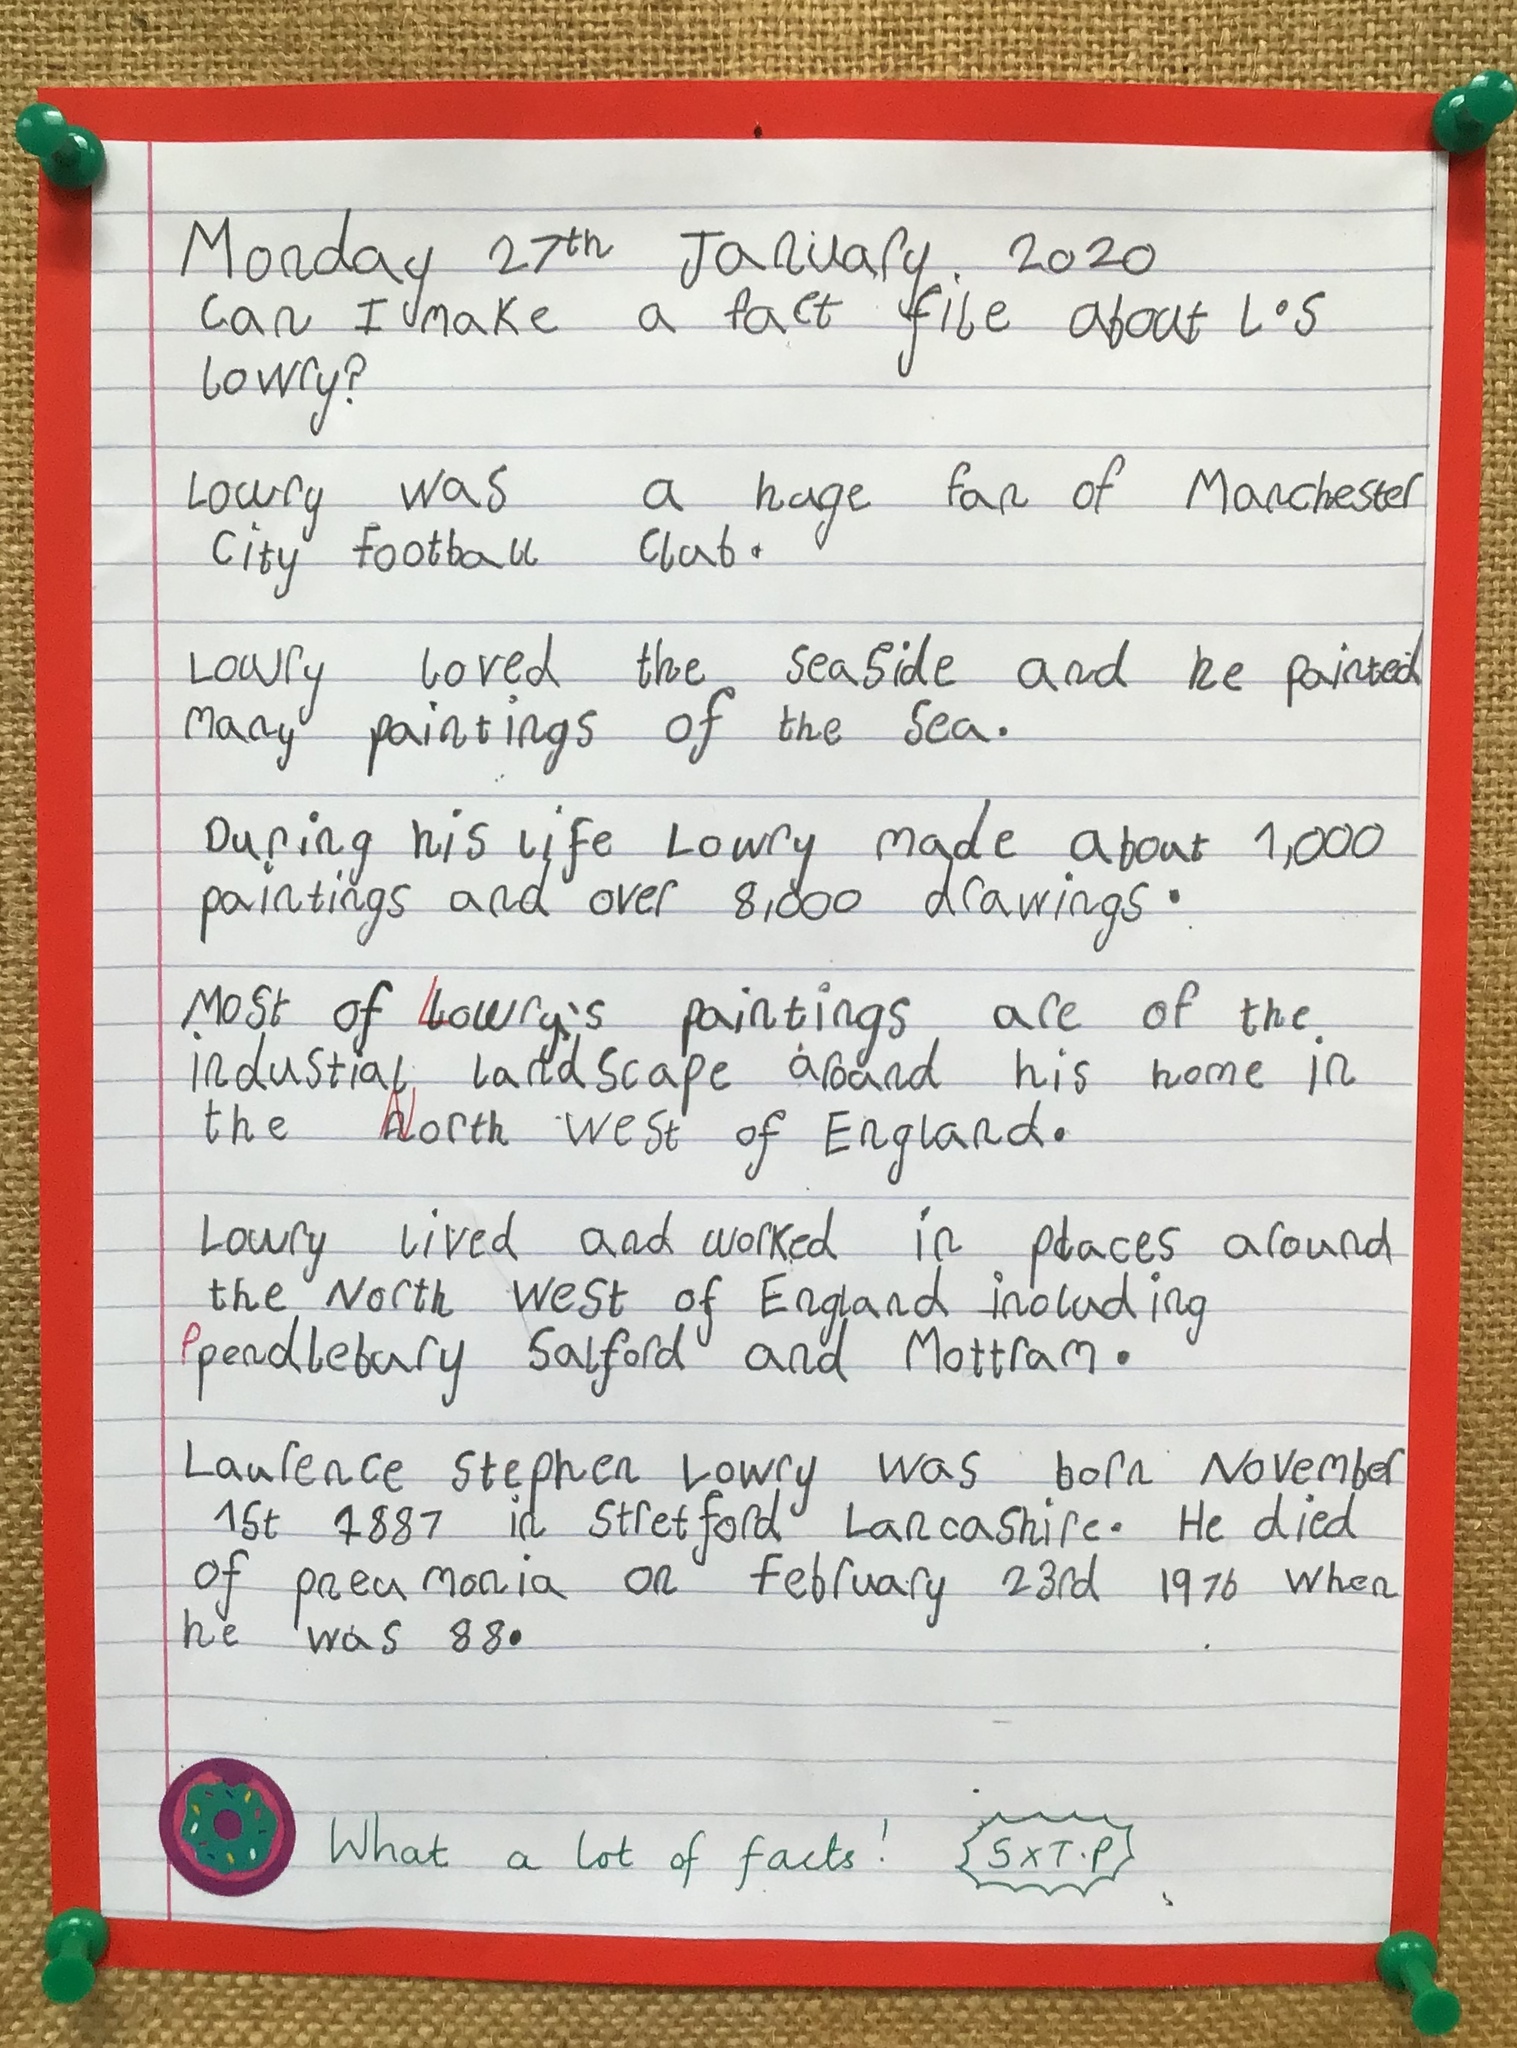 Monday 27th January. 2020
Can I make a fact file about L.S
lowry?
Lowry was a huge fan of Manchester
City football Club.
Lowry loved the seaside and he painted
many paintings of the sea.
During his life Lowry made about 1,000
paintings and over 8,000 drawings.
Most of Lowry's paintings are of the
industial landscape around his home in
the North west of England.
Lowry lived and worked in places around
the North west of England including
Ppendlebury Salford and Mottram.
Laurence Stephen Lowry was born November
1st 1887 in Stretford Lancashire. He died
of pneumonia on February 23rd 1976 when
he was 88.
What a lot of facts! 5xT.P